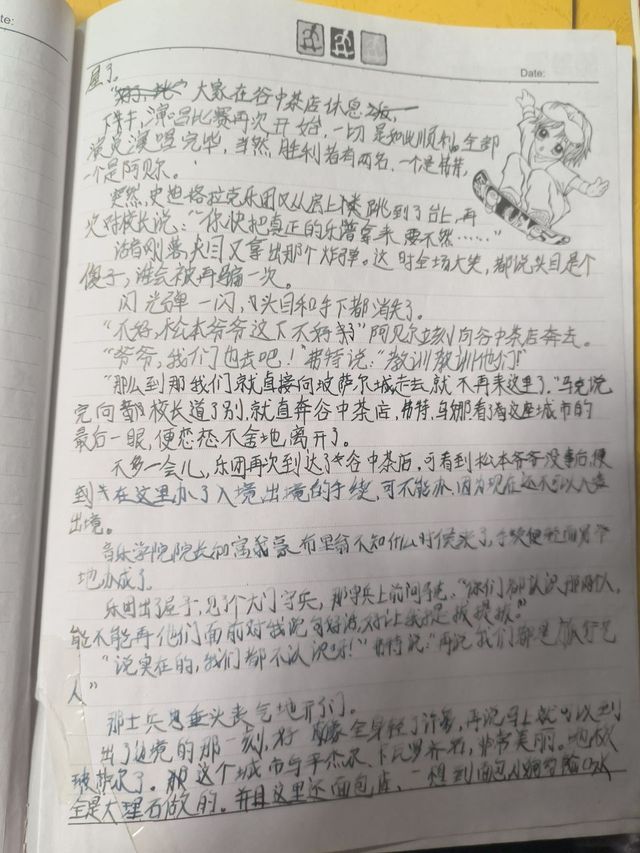 te:
Date:
星了。
大家在谷中茶店休息
下午,演唱比赛再次开始,一切是如此顺利。全部
演员演唱完毕,当然,胜利者有两名,一个是
一个是阿贝尔。
突然,史坦格拉克乐团又从房上楼跳到了台上,再
次对校长说:“你快把真正的乐谱拿来,要不然……”
话音刚落,头目又拿出那个炸弹。这时全场大笑,都说头目是个
傻子,谁会被再骗一次。
闪光弹一闪,头目和手下都消失了。
“不好,松本爷爷这下不好了”阿贝尔立刻向谷中茶店奔去。
“爷爷,我们也去吧!”特说:“教训教训他们!”
“那么到那我们就直接向坡萨尔城走去,就不再来这里了,”马克说
完向校长道了别,就直奔谷中茶店,特,马娜看着这座城市的
最后一眼,便恋恋不舍地离开了。
不多一会儿,乐团再次到达了谷中茶店,可看到松本爷爷没事后,便
到在这里办了入境,出境的手续,可不能办,因为现在还不可以入
出境。
音乐学院院长布里翁不知什么时候来了,手续便
地办成了。
乐团出了屋子,见了个大门守兵,那守兵上前问:“你们都认识
能不能再他们面前对我说句好话,好让我提拔提拔。”
“说实在的,我们都不认识呀!”特说:“再说我们都是旅行艺
人”
那士兵垂头丧气地开了门。
出了边境的那一刻,好全身轻了许多,再说马上就可以到
坡萨尔了。这个城市与卡瓦罗齐名,非常美丽。
全是大理石做的。并且这里还面包店,一想到面包